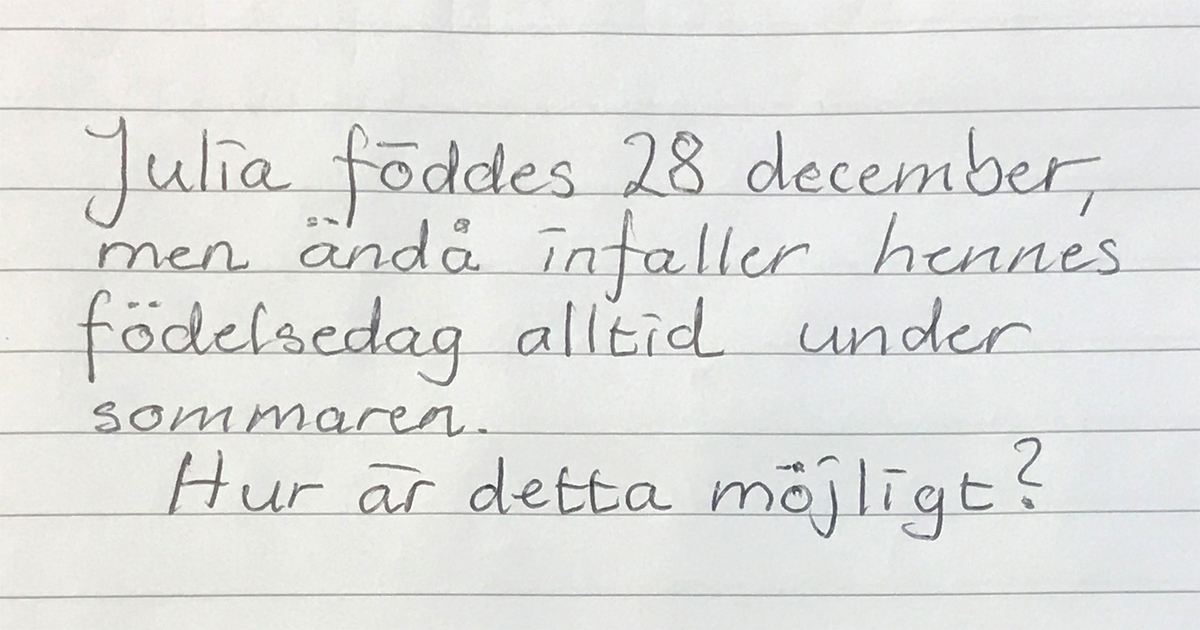 Julia föddes 28 december,
men ändå infaller hennes
födelsedag alltid under
sommaren.
Hur är detta möjligt?